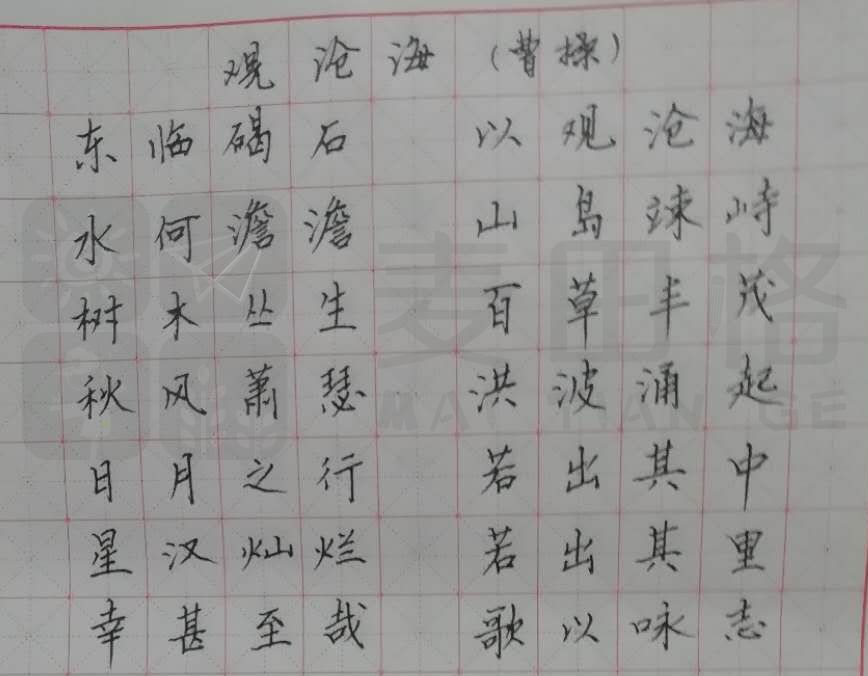 观沧海（曹操）
东临碣石 以观沧海
水何澹澹 山岛竦峙
树木丛生 百草丰茂
秋风萧瑟 洪波涌起
日月之行 若出其中
星汉灿烂 若出其里
幸甚至哉 歌以咏志
麦田格
MAI TIAN GE